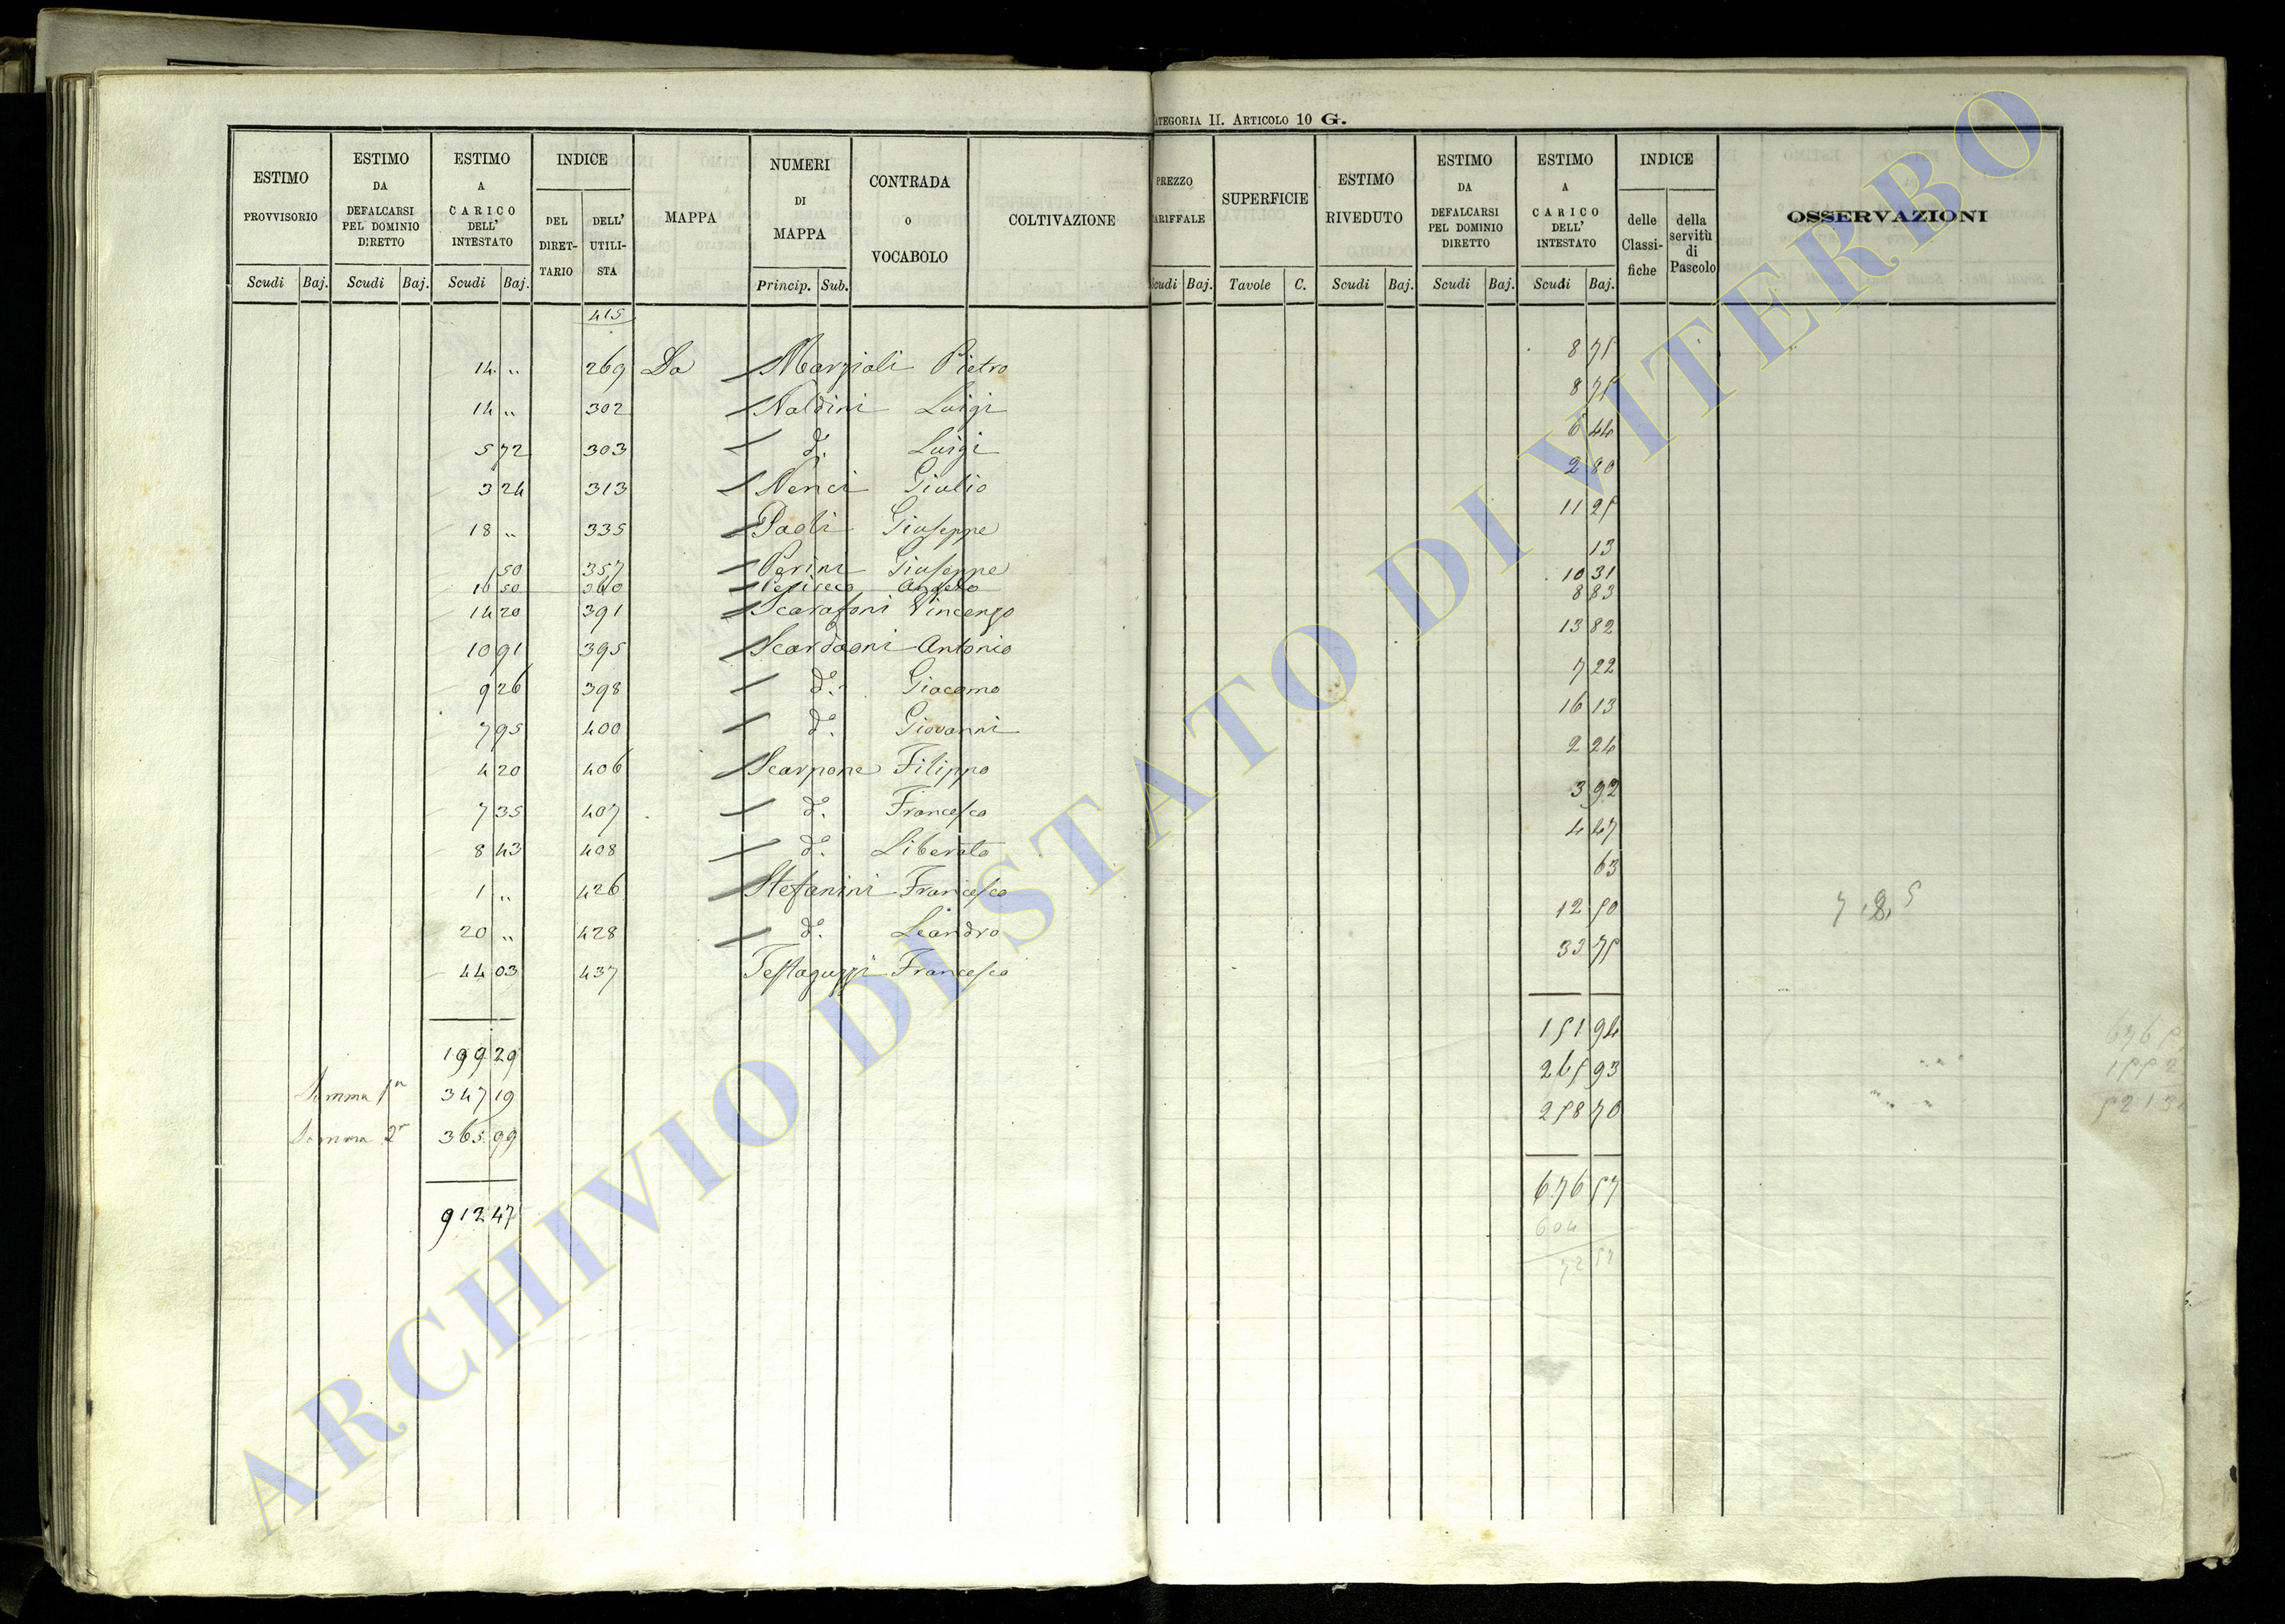 CATEGORIA II. ARTICOLO 10 G.
ESTIMO PROVVISORIO Scudi Baj.
ESTIMO DA DEFALCARSI PEL DOMINIO DIRETTO Scudi Baj.
ESTIMO A CARICO DELL' INTESTATO Scudi Baj.
INDICE DEL DIRETTARIO DELL' UTILISTA
MAPPA
NUMERI DI MAPPA Princip. Sub.
CONTRADA o VOCABOLO
COLTIVAZIONE
PREZZO TARIFFALE Scudi Baj.
SUPERFICIE Tavole C.
ESTIMO RIVEDUTO Scudi Baj.
ESTIMO DA DEFALCARSI PEL DOMINIO DIRETTO Scudi Baj.
ESTIMO A CARICO DELL' INTESTATO Scudi Baj.
INDICE delle Classifiche della servitù di Pascolo
OSSERVAZIONI
415
14 „ 269 Da Marziali Pietro 8 75
14 „ 302 Naldini Luigi 8 75
5 72 303 d. Luigi 6 44
3 24 313 Nenci Giulio 2 80
18 „ 335 Paoli Giuseppe 11 25
50 357 Perini Giuseppe 13
16 50 360 Angelo 10 31
14 20 391 Scarafoni Vincenzo 8 83
10 91 395 Scardaoni Antonio 13 82
9 26 398 d.° Giacomo 7 22
7 95 400 d.° Giovanni 16 13
4 20 406 Scarpone Filippo 2 24
7 35 407 d.° Francesco 3 92
8 43 408 d.° Liberato 4 47
1 „ 426 Stefanini Francesco 63
20 „ 428 d.° Leandro 12 50
44 03 437 Testaguzzi Francesco 33 75
199 29 151 94
Somma 1a 347 19 265 93
Somma 2a 365 99 258 70
912 47 676 57
604
72 57
ARCHIVIO DI STATO DI VITERBO